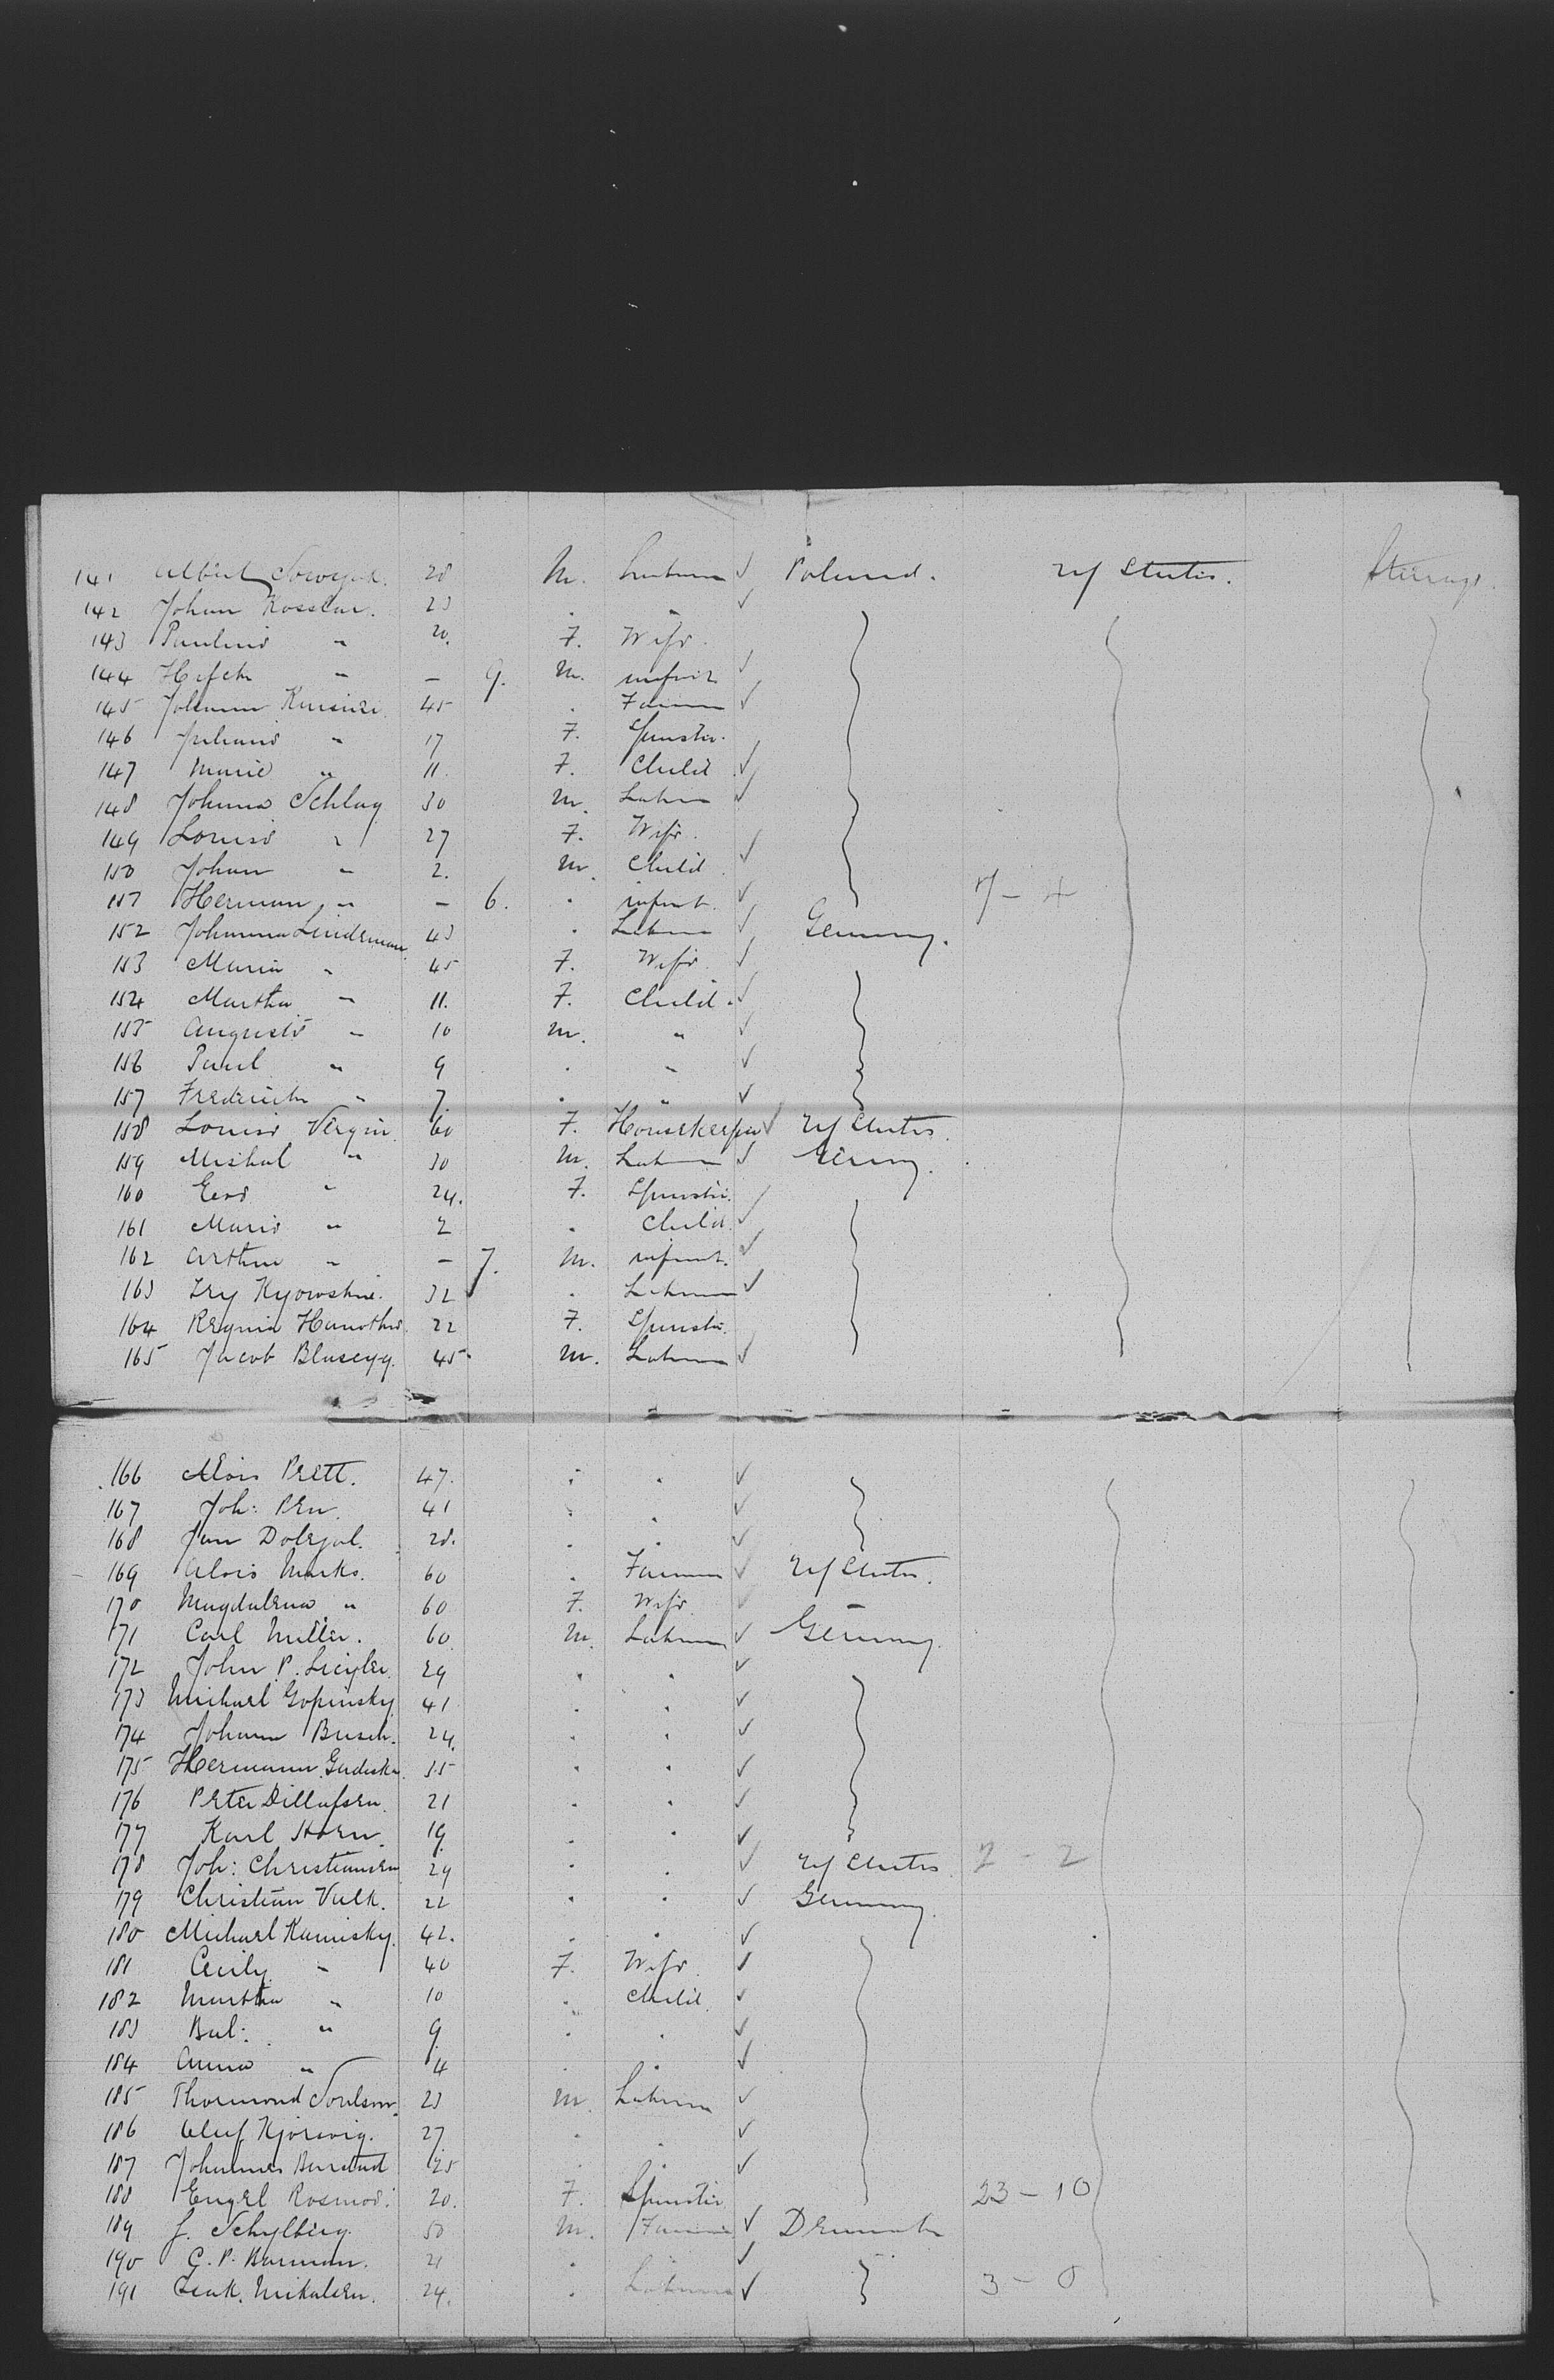 141 Albert 28 M. Labourer ✓ Poland. U/ States. Steerage.
142 Johan Kosslar. 23 . " ✓
143 Pauline " 20. F. Wife.
144 " – 9. M. infant ✓
145 Johann 45 . Farmer ✓
146 " 17 F. Spinster.
147 Marie " 11. F. Child ✓
148 Johann Schlag 30 M. Labour ✓
149 Louise " 27 F. Wife.
150 Johan " 2. M. Child. ✓
151 Herman " – 6. . infant. ✓ 7 – 4
152 Johanna Lindeman 43 . Labour ✓ Germany.
153 Maria " 45 F. Wife. ✓
154 Martha " 11. F. Child. ✓
155 Auguste " 10 M. " ✓
156 Paul " 9 . " ✓
157 Frederick " 7. . " ✓
158 Louise Vergin 60 F. Housekeeper ✓ U/ States.
159 Michal " 30 M. Labour ✓ Germany.
160 " 24. F. Spinster.
161 Marie " 2 . Child. ✓
162 Arthur " – 7. M. infant. ✓
163 32 . Labourer ✓
164 22 F. Spinster.
165 Jacob 45. M. Labour ✓
166 Alois Prett. 47. . . ✓
167 Joh: 41 . . ✓
168 Jan Dolejal. 28. . . ✓
169 Alois Marks. 60 . Farmer ✓ U/ States.
170 Magdalena " 60 F. Wife. ✓
171 Carl Miller. 60 M. Labour ✓ Germany.
172 John P. 29 . . ✓
173 Michael Gopinsky 41 . . ✓
174 Johann Busch. 24. . . ✓
175 Hermann 35 . . ✓
176 Peter 21 . . ✓
177 Karl Horn. 19. . . ✓
178 Joh: Christiansen 29 . . ✓ U/ States 2 – 2
179 Christian 22 . . ✓ Germany.
180 Michael Kaminsky. 42. . . ✓
181 Cecily " 40 F. Wife. ✓
182 Martha " 10 . Child. ✓
183 Bal: " 9. . . ✓
184 Anna " 4 . . ✓
185 23 M. Labour ✓
186 27 . . ✓
187 Johannes 25 . . ✓
188 Engel 20. F. Spinster 23 – 10
189 J. Schylberg. 50 M. Farmer ✓ Denmark
190 G. P. Barman. 21 . " ✓
191 Mikalsen. 24. . Labour ✓ 3 – 0